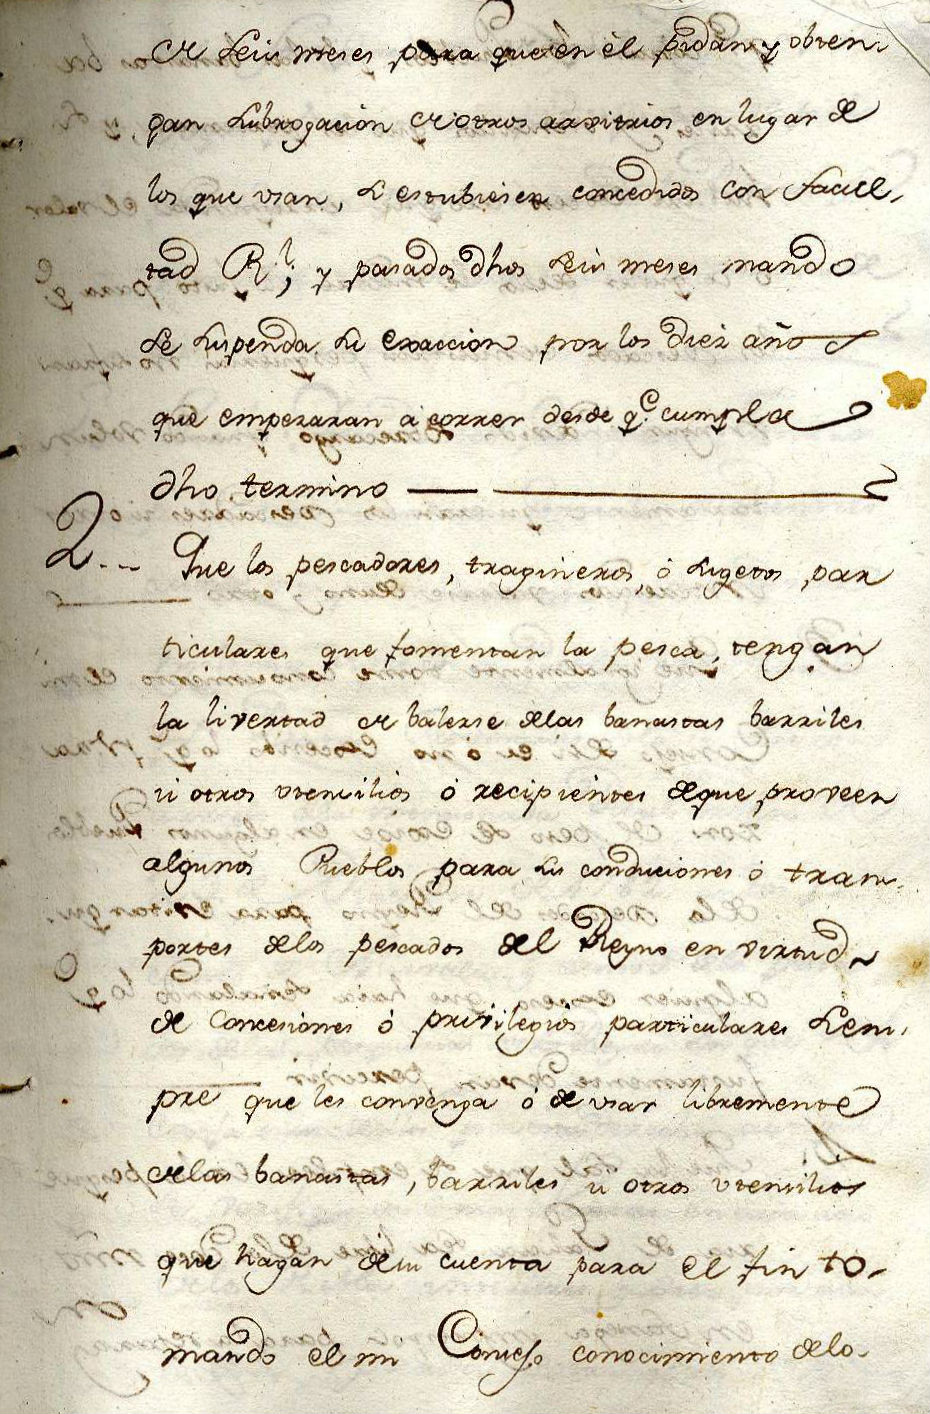 de seis meses para que èn èl pidan y obten-
gan subrogacion de otros arvitrios en lugar de
los que usan, ô estubiesen concedidos con facul-
tad Rl; y pasados dhos seis meses mando
se suspenda su exaccion por los diez años
que empezaran a correr desde q.e cumpla
dho termino
2... Que los pescadores, tragineros, ó sugetos par
ticulares que fomentan la pesca, tengan
la livertad de balerse delas banastas barriles
ú otros utensilios ó recipientes deque proveen
algunos Pueblos para sus conduciones ó trans-
portes delos pescados del Reyno en virtud
de Concesiones ó privilegios particulares siem-
pre que les convenga ó de usar libremente
delas banastas, barriles ú otros utensilios
que hagan desu cuenta para el fin to-
mando el mi Consejo conocimiento delo-